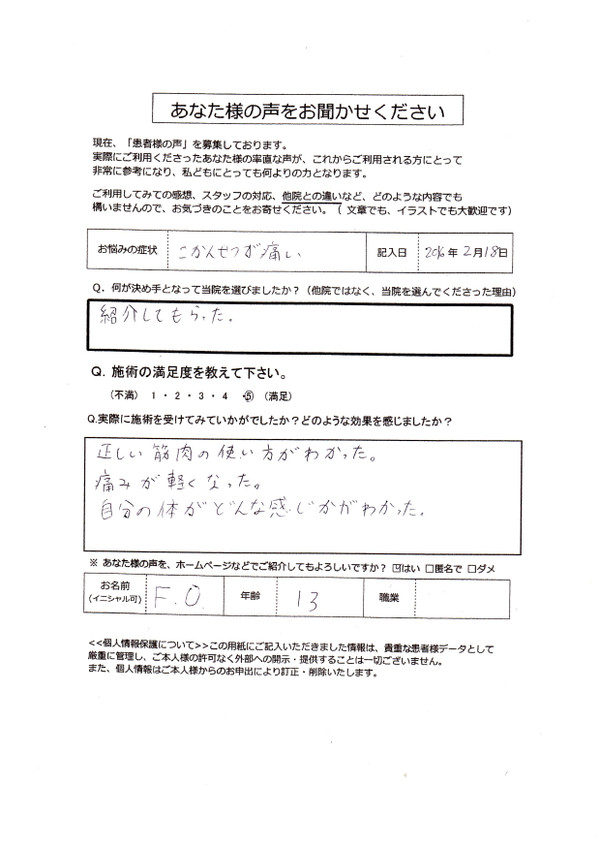 あなた様の声をお聞かせください
現在、「患者様の声」を募集しております。
実際にご利用くださったあなた様の率直な声が、これからご利用される方にとって
非常に参考になり、私どもにとっても何よりの力となります。
ご利用してみての感想、スタッフの対応、他院との違いなど、どのような内容でも
構いませんので、お気づきのことをお寄せください。（ 文章でも、イラストでも大歓迎です）
お悩みの症状 こかんせつが痛い 記入日 2016年 2月18日
Q．何が決め手となって当院を選びましたか？（他院ではなく、当院を選んでくださった理由）
紹介してもらった.
Q. 施術の満足度を教えて下さい。
（不満） 1 ・ 2 ・ 3 ・ 4 ・ ⑤ （満足）
Q.実際に施術を受けてみていかがでしたか？どのような効果を感じましたか？
正しい筋肉の使い方がわかった。
痛みが軽くなった。
自分の体がどんな感じかがわかった.
※ あなた様の声を、ホームページなどでご紹介してもよろしいですか？ ☑はい □匿名で □ダメ
お名前 (イニシャル可) F.O. 年齢 13 職業
<<個人情報保護について>>この用紙にご記入いただきました情報は、貴重な患者様データとして
厳重に管理し、ご本人様の許可なく外部への開示・提供することは一切ございません。
また、個人情報はご本人様からのお申出により訂正・削除いたします。